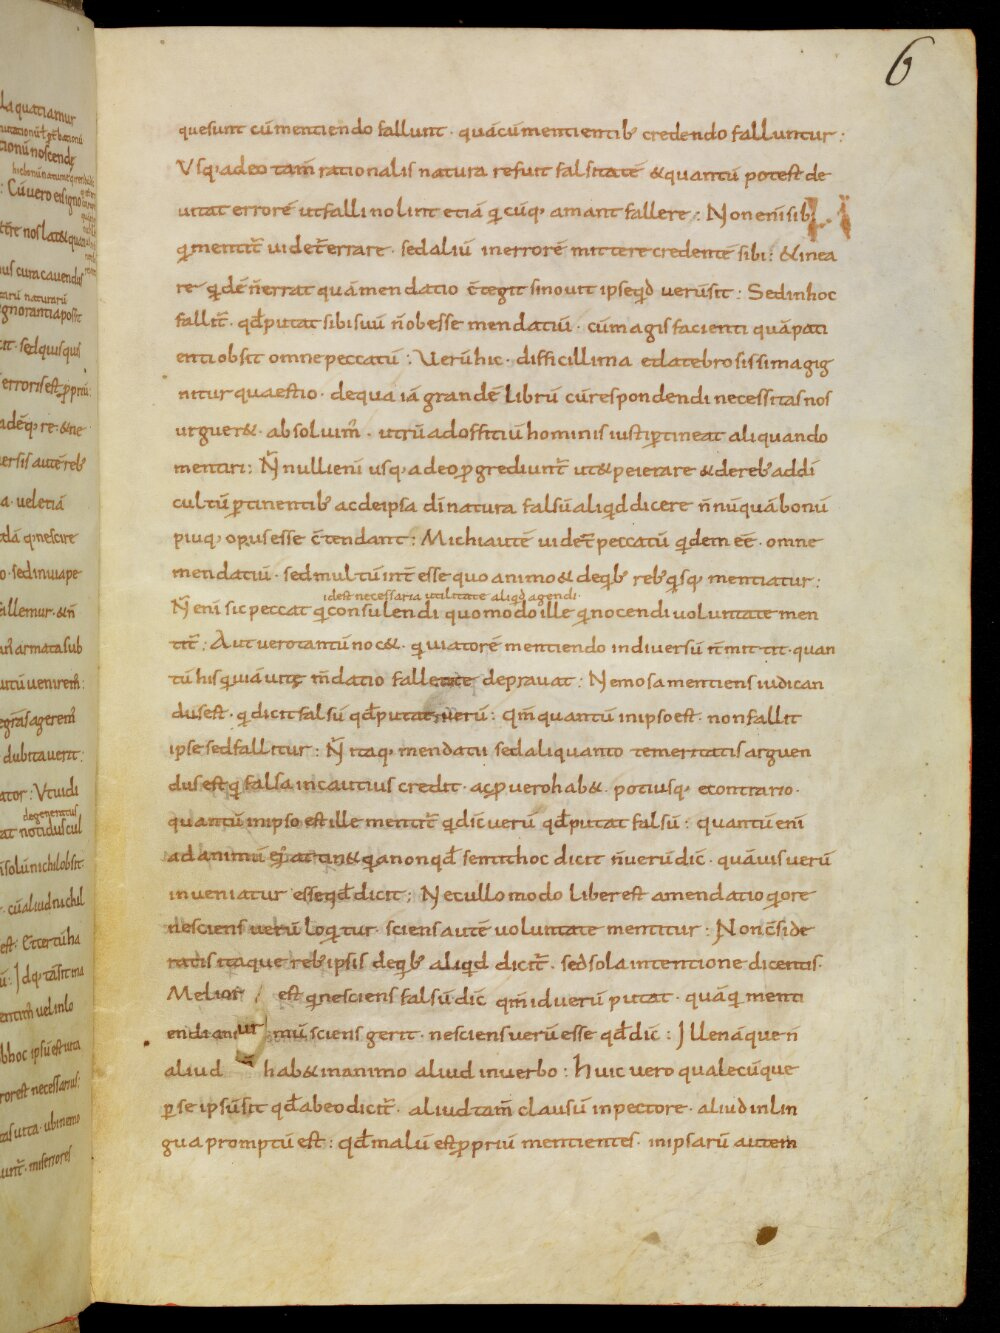 6
que sunt cū mentiendo fallunt · quā cū mentientib; credendo falluntur :
Vsq; adeo tam̄ rationalis natura refuit falsitatē & quantū potest de
uitat errorē ut falli nolint etiā qi cūq; amant fallere : Non eni sibi
qi mentit̄ uidet̄ errare · sed aliū in errorē mittere credentē sibi : & in ea
re qidē n̄ errat quā mendatio c̄tegit si nouit ipse qid uerū sit : Sed in hoc
fallit̄ · qd̄ putat sibi suū n̄ obesse mendatiū · cū magis facienti quā pati
enti obsit omne peccatū : Verū hic · difficillima & latebrosissima gig
nitur quaestio · de qua iā grandē librū cū respondendi necessitas nos
urguer& · absoluim̄ · utrū ad offitiū hominis iusti p̄tineat aliquando
mentiri : N̄ nulli eni usq; adeo p̄grediunt̄ ut & peierare & de reb; ad di
cultū p̄tinentib; ac de ipsa dī natura falsū aliqid dicere n̄ nūquā bonū
piuq; opus esse c̄tendant : Michi autē uidet̄ peccatū qidem eē · omne
mendatiū · sed multū int̄ esse quo animo & de qib; reb; qisq; mentiatur :
idest necessaria utilitate aliqid agendi ·
N̄ eni sic peccat qi consulendi quomodo ille qi nocendi uoluntate men
tit̄ : Aut uero tantū noc& · qi uiatorē mentiendo in diuersū n̄ mittit · quan
tū his qi uiā uitę m̄datio fallente deprauat : Nemo sa mentiens iudican
dus est · qi dicit falsū qd̄ putat uerū : qm̄ quantū in ipso est · non fallit
ipse sed fallitur : N̄ itaq; mendatii sed aliquanto temeritatis arguen
dus est qi falsa incautius credit · ac p̄ uero hab& · potiusq; econtrario ·
quantū in ipso est ille mentit̄ qi dic̄ uerū qd̄ putat falsū : quantū eni
ad animū ei; attin& qia non qd̄ sentit hoc dicit n̄ uerū dic̄ · quāuis uerū
inueniatur esse qd̄ dicit ; Nec ullo modo liber est a mendatio qi ore
nesciens uerū loqitur · sciens autē uoluntate mentitur : Non c̄side
ratis itaque reb; ipsis de qib; aliqid dicit̄ · sed sola intentione dicentis ·
Melior est qi nesciens falsū dic̄ qm̄ id uerū putat · quā qi menti
endi animū sciens gerit · nesciens uerū esse qd̄ dic̄ : Ille nāque n̄
aliud hab& in animo aliud in uerbo : huic uero qualecūque
p̄ se ipsū sit qd̄ ab eo dicit̄ · aliud tam̄ clausū in pectore · aliud in lin
gua promptū est : qd̄ malū est p̄priū mentientes · in ipsarū autem